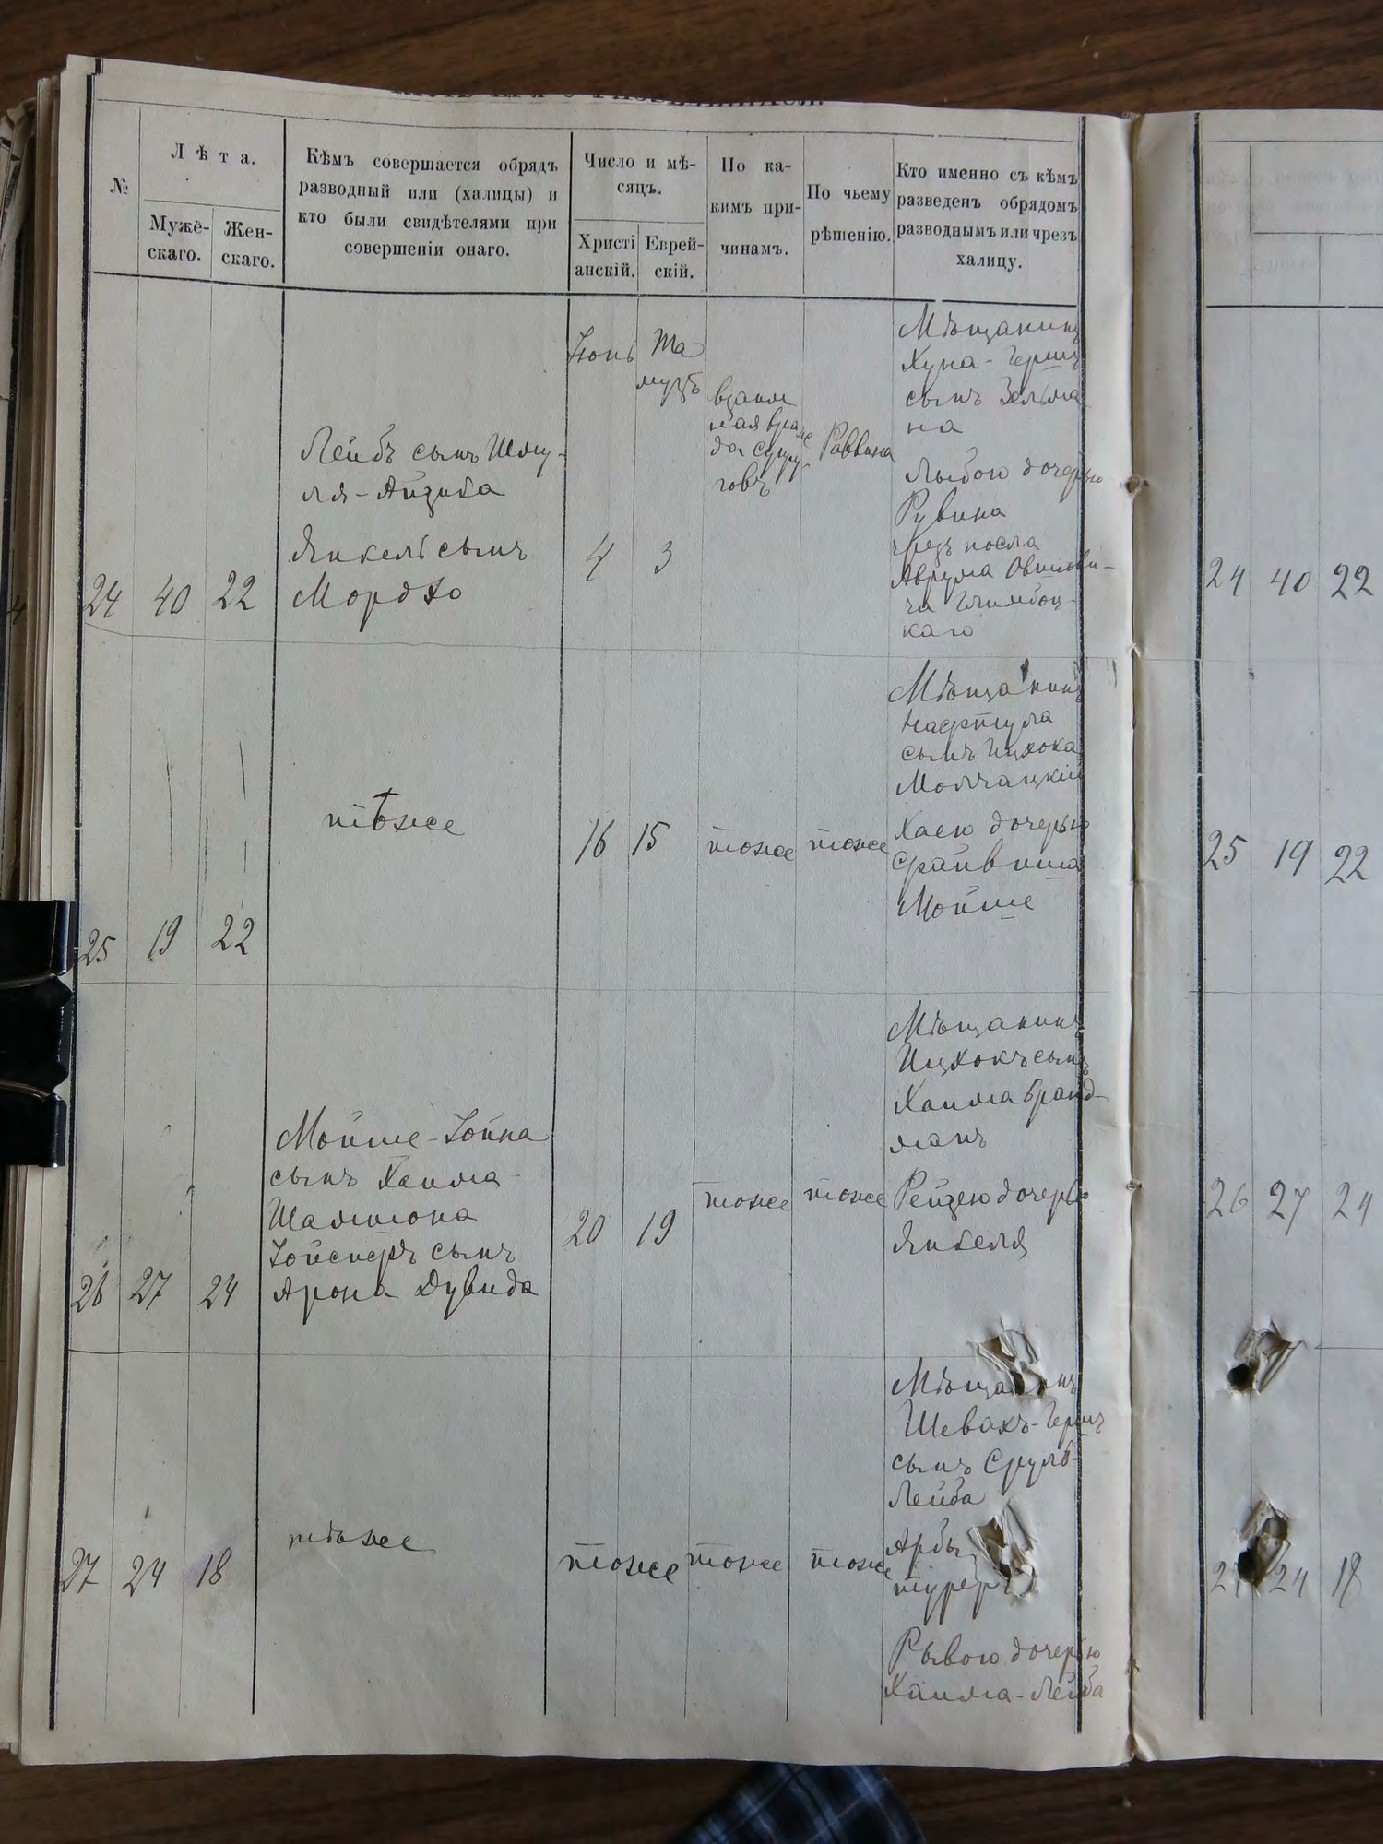 №
Лѣта.
Мужескаго.
Женскаго.
Кѣмъ совершается обрядъ
разводный или (халицы) и
кто были свидѣтелями при
совершеніи онаго.
Число и мѣ-
сяцъ.
Христі
анскій.
Еврей-
скій.
По ка-
кимъ при-
чинамъ.
По чьему
рѣшенію.
Кто именно съ кѣмъ
разведенъ обрядомъ
разводнымъ или чрезъ
халицу.
24 40 22
Лейбъ сынъ Шму-
ля-Айзика
Янкель сынъ
Мордхо
Іюнь
4
Та
музъ
3
взаим
ная вра
да супру
говъ
Раввина
Мѣщанинъ
Хуна-Гершъ
сынъ Зельма
на
дочерью
Рувина
чрезъ посла
Аврума
каго
25 19 22
тоже
16 15
тоже
тоже
Мѣщанинъ
Нафтула
сынъ Ицхока
Молчацкій
Хаею дочерью
Файвиша
Мойше
26 27 24
Мойше-Іойна
сынъ Хаима-
Шаямона
Іойсиферъ сынъ
Арона Дувида
20 19
тоже
тоже
Мѣщанинъ
Ицхокъ сынъ
Хаима Бранд-
манъ
Рейзею дочерью
Янкеля
27 24 18
тоже
тоже
тоже
тоже
Мѣщанинъ
Шевахъ-Гершъ
сынъ Сруль-
Лейба
Рывою дочерью
Хаима-Лейба
24 40 22
25 19 22
26 27 24
27 24 18